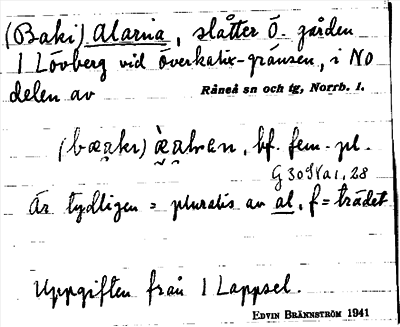 (Baki) alarna, slåtter Ö. gården
1 Lövberg vid Överkalix-gränsen, i NO
delen av
Råneå sn och tg, Norrb. l.
bf. fem. pl.
G 30 Na 1, 28
Är tydligen = pluralis av al, f = trädet
Uppgiften från 1 Lappsel.
EDVIN BRÄNNSTRÖM 1941